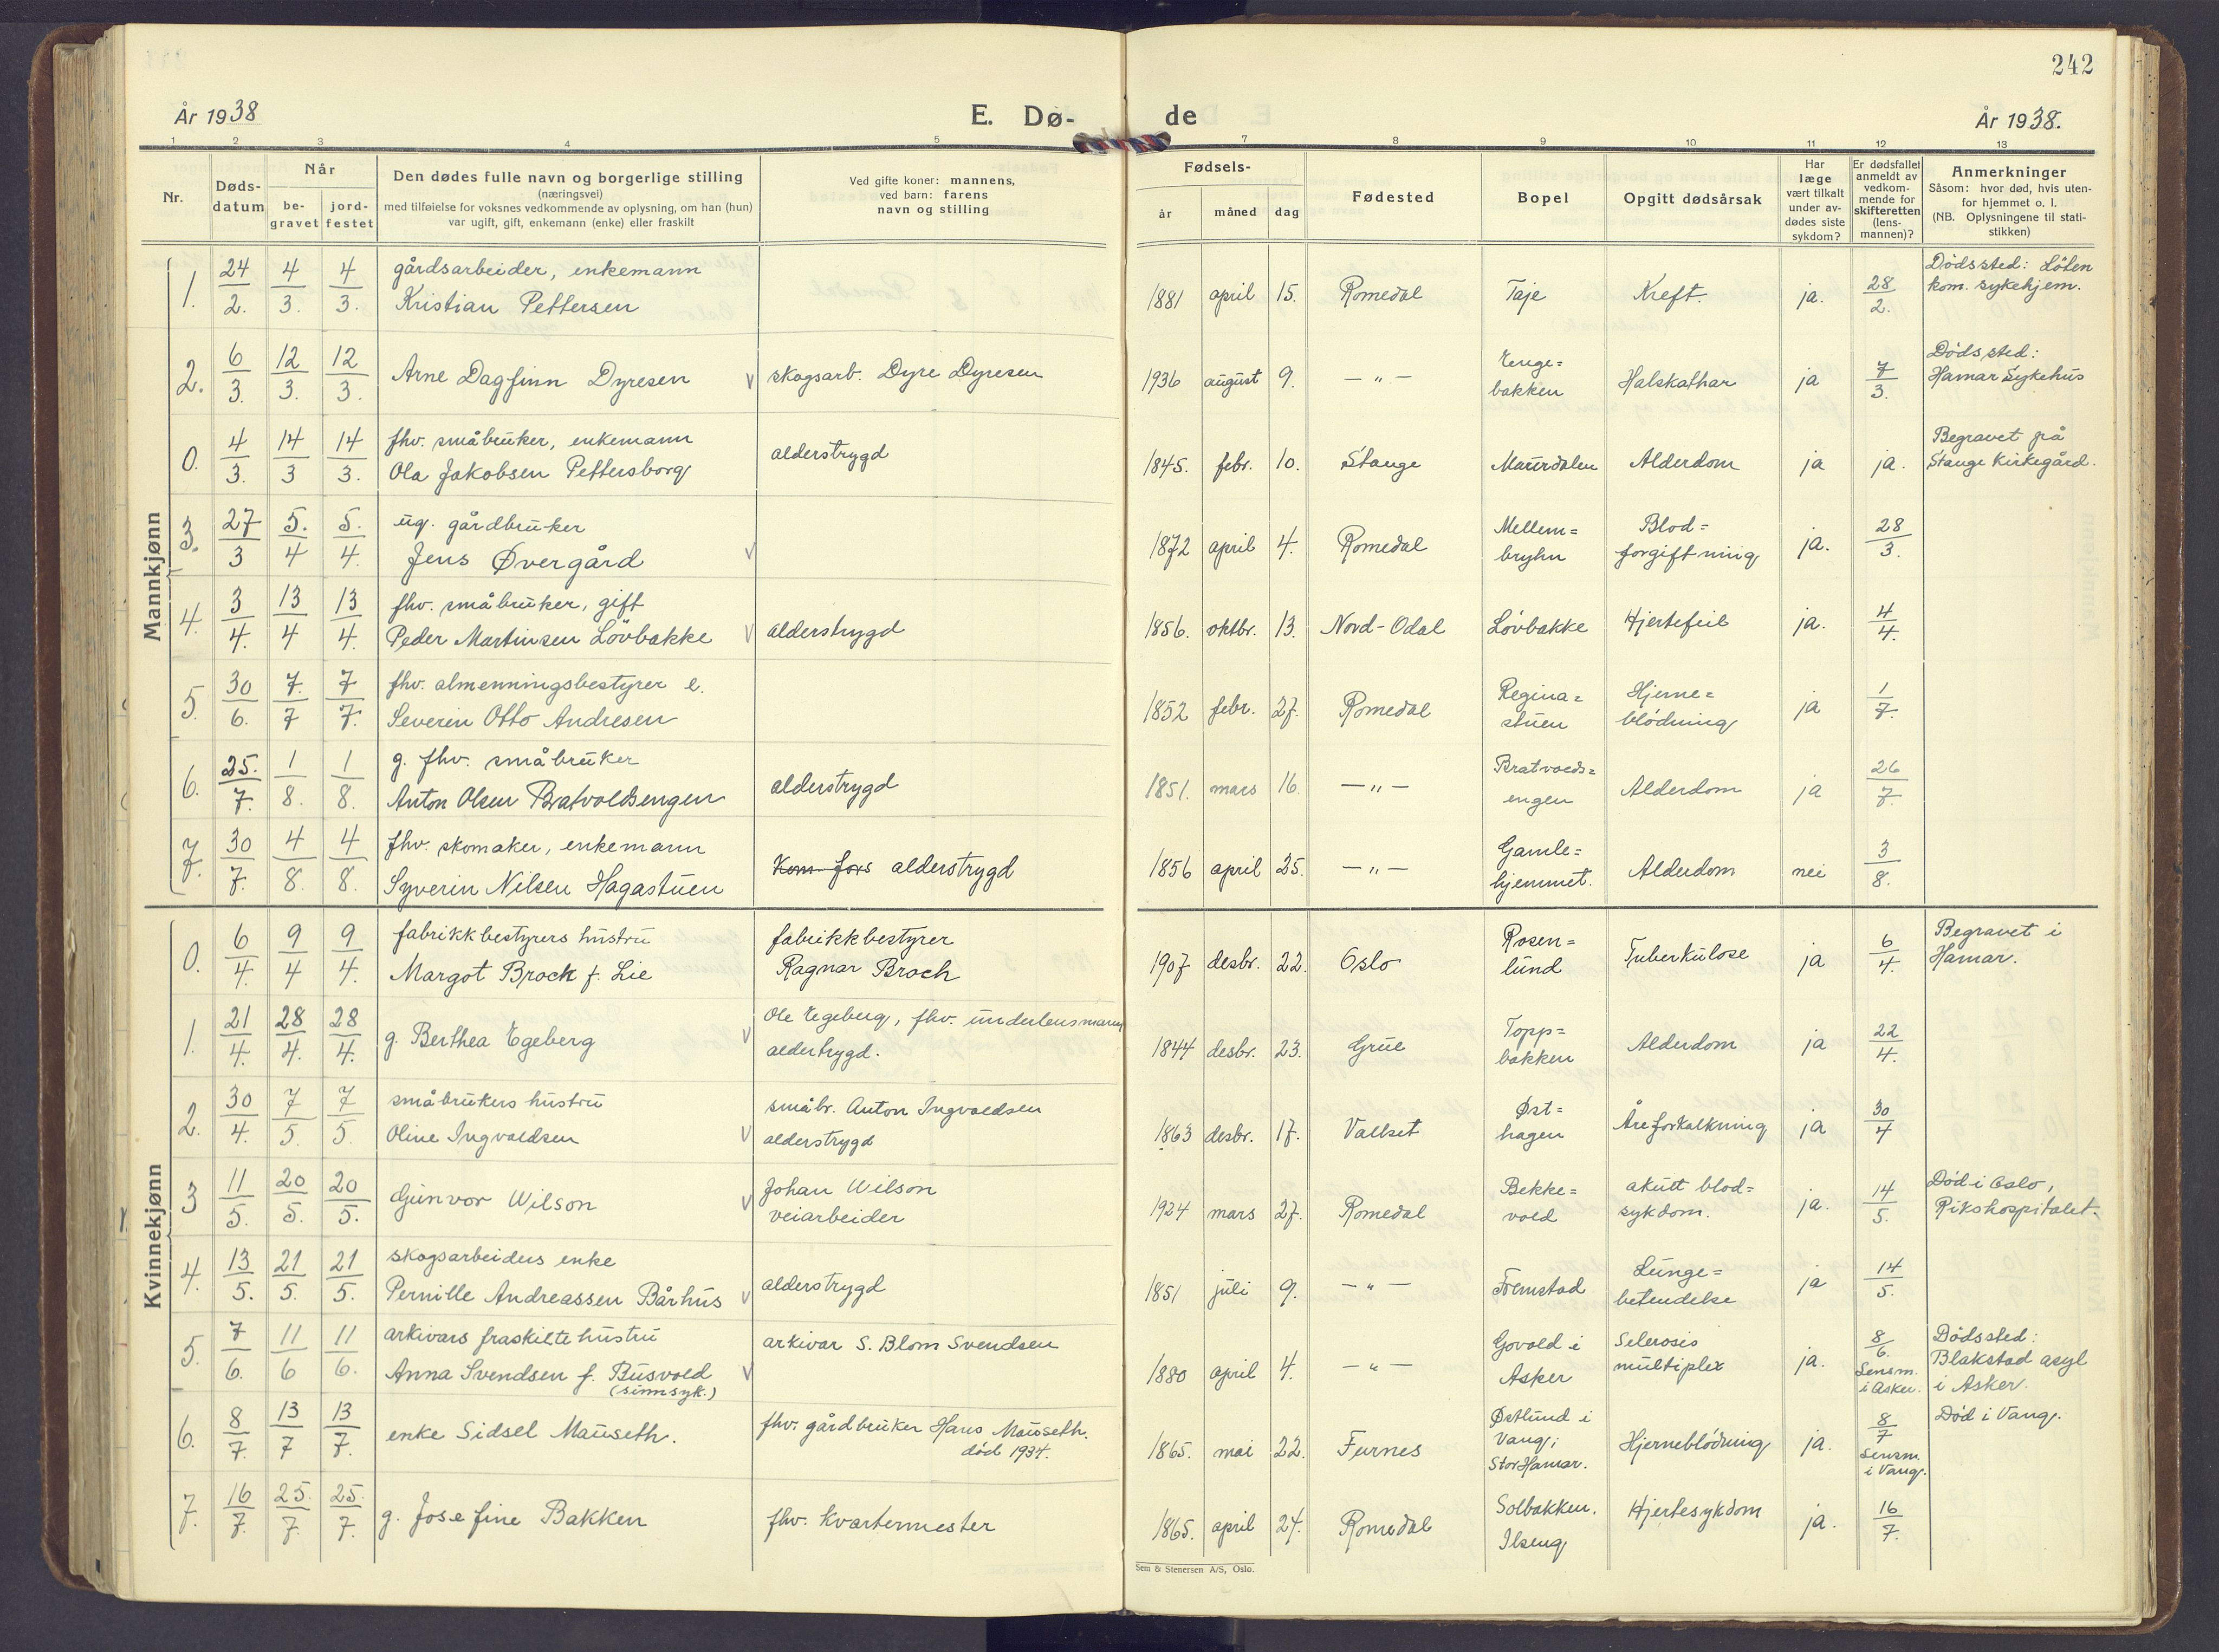 242
År 1938
E. Dø-
de
År 1938.
1 2 3 4 5 7 8 9 10 11 12 13
Nr.
Døds-
datum
Når
be-
gravet
jord-
festet
Den dødes fulle navn og borgerlige stilling
(næringsvei)
med tilføielse for voksnes vedkommende av oplysning, om han (hun)
var ugift, gift, enkemann (enke) eller fraskilt
Ved gifte koner: mannens,
ved barn: farens
navn og stilling
Fødsels-
år måned dag
Fødested
Bopel
Opgitt dødsårsak
Har
læge
vært tilkalt
under av-
dødes siste
sykdom?
Er dødsfallet
anmeldt av
vedkom-
mende for
skifteretten
(lens-
mannen)?
Anmerkninger
Såsom: hvor død, hvis uten-
for hjemmet o. l.
(NB. Oplysningene til stati-
stikken)
Mannkjønn
1. 24/2. 4/3. 4/3. gårdsarbeider, enkemann
Kristian Pettersen
1881 april 15. Romedal Taje Kreft. ja. 28/2.
Dødssted: Løten
kom. sykehjem.
2. 6/3. 12/3. 12/3. Arne Dagfinn Dyresen v skogsarb. Dyre Dyresen
1936 august 9. — " — Enge=
bakken
Halskathar ja 7/3.
Dødssted:
Hamar Sykehus
0. 4/3. 14/3 14/3. fhv. småbruker, enkemann
Ola Jakobsen Pettersborg
alderstrygd
1845. febr. 10. Stange Maurdalen Alderdom ja ja.
Begravet på
Stange Kirkegård.
3. 27/3 5./4 5./4. ug. gårdbruker
Jens Øvergård v
1872 april 4. Romedal Mellem=
bryhn
Blod=
forgiftning
ja. 28/3.
4. 3/4. 13/4 13/4. fhv. småbruker, gift
Peder Martinsen Løvbakke v alderstrygd
1856. oktbr. 13. Nord-Odal Løvbakke Hjertefeil ja. 4/4.
5. 30/6. 7./7 7/7. fhv. almenningsbestyrer e.
Severin Otto Andresen
1852 febr. 27. Romedal Regina=
stuen
Hjerne=
blødning
ja 1/7.
6. 25./7. 1/8. 1/8. g. fhv. småbruker
Anton Olsen Bratvoldsengen
alderstrygd
1851. mars 16. — " — Bratvolds=
engen
Alderdom ja 26/7.
7. 30/7. 4/8. 4/8. fhv. skomaker, enkemann
Syverin Nilsen Hagastuen
Kom fors alderstrygd
1856 april 25. — " — Gamle=
hjemmet.
Alderdom nei 3/8.
Kvinnekjønn
0. 6/4. 9/4 9/4. fabrikkbestyrers hustru
Margot Brock f. Lie
fabrikkbestyrer
Ragnar Broch
1907 desbr. 22. Oslo Rosen=
lund
Tuberkulose ja 6/4.
Begravet i
Hamar.
1. 21/4. 28/4. 28/4. g. Berthea Egeberg v
Ole Egeberg, fhv. underlensmann
aldertrygd.
1844 desbr. 23. Grue Topp=
bakken
Alderdom ja 22/4.
2. 30/4. 7/5. 7/5. småbrukers hustru
Oline Ingvaldsen v
småbr. Anton Ingvaldsen
alderstrygd
1863 desbr. 17. Vallset Øst=
hagen
Åreforkalkning ja 30/4
3 11/5. 20/5. 20/5. Gunvor Wilson v
Johan Wilson
veiarbeider
1924 mars 27. Romedal Bekke=
vold
akutt blod=
sykdom.
ja. 14/5.
Død i Oslo,
Rikshospitalet.
4. 13/5. 21/5. 21/5. skogsarbeiders enke
Pernille Andreassen Bårhus v alderstrygd
1851 juli 9. — " — Fremstad Lunge=
betendelse
ja 14/5.
5. 7/6. 11/6 11/6. arkivars fraskilte hustru
Anna Svendsen f. Busvold v
(sinnsyk.)
arkivar S. Blom Svendsen
1880 april 4. — " — Govold i
Asker
Selerosis
multiplex
ja. 8/6.
Lensm.
i Asker.
Dødssted:
Blakstad asyl
i Asker.
6. 8/7. 13/7 13/7. enke Sidsel Mauseth.
fhv. gårdbruker Hans Mauseth.
død 1934.
1865. mai 22. Furnes Østlund i
Vang;
StorHamar.
Hjerneblødning ja. 8/7
Lensm.
i Vang.
Død i Vang.
7. 16/7. 25./7. 25./7. g. Josefine Bakken
fhv. kvartermester
1865. april 24. Romedal Solbakken.
Ilseng
Hjertesykdom ja. 16/7.
Sem & Stenersen A/S, Oslo.